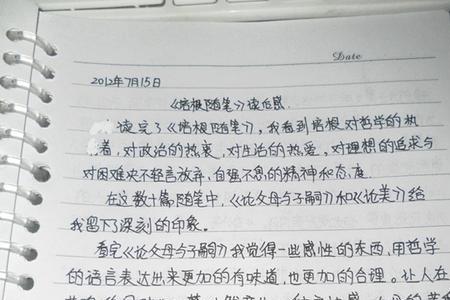 Date
2012年7月15日
《培根随笔》读后感
读完了《培根随笔》,我看到培根对哲学的热
着,对政治的热衷,对生活的热爱,对理想的追求与
对困难决不轻言放弃,自强不息的精神和态度
在这数十篇随笔中,《论父母与子嗣》和《论美》给
我留下了深刻的印象。
看完《论父母与子嗣》我觉得一些感性的东西,用哲学
的语言表达出来更加的有味道,也更加的合理。让人在